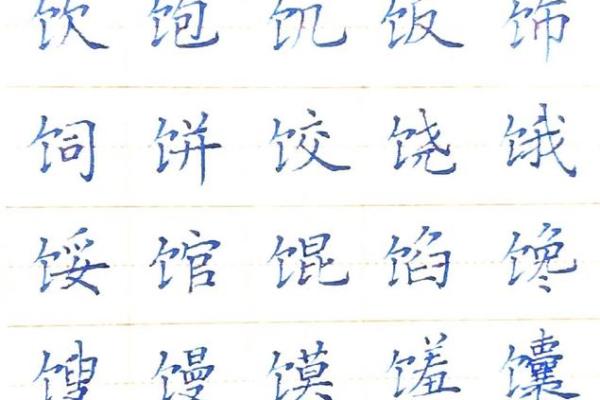 饮 饱 饥 饭 饰
饲 饼 饺 饶 饿
馁 馆 馄 馅 馋
馊 馒 馍 馐 馕